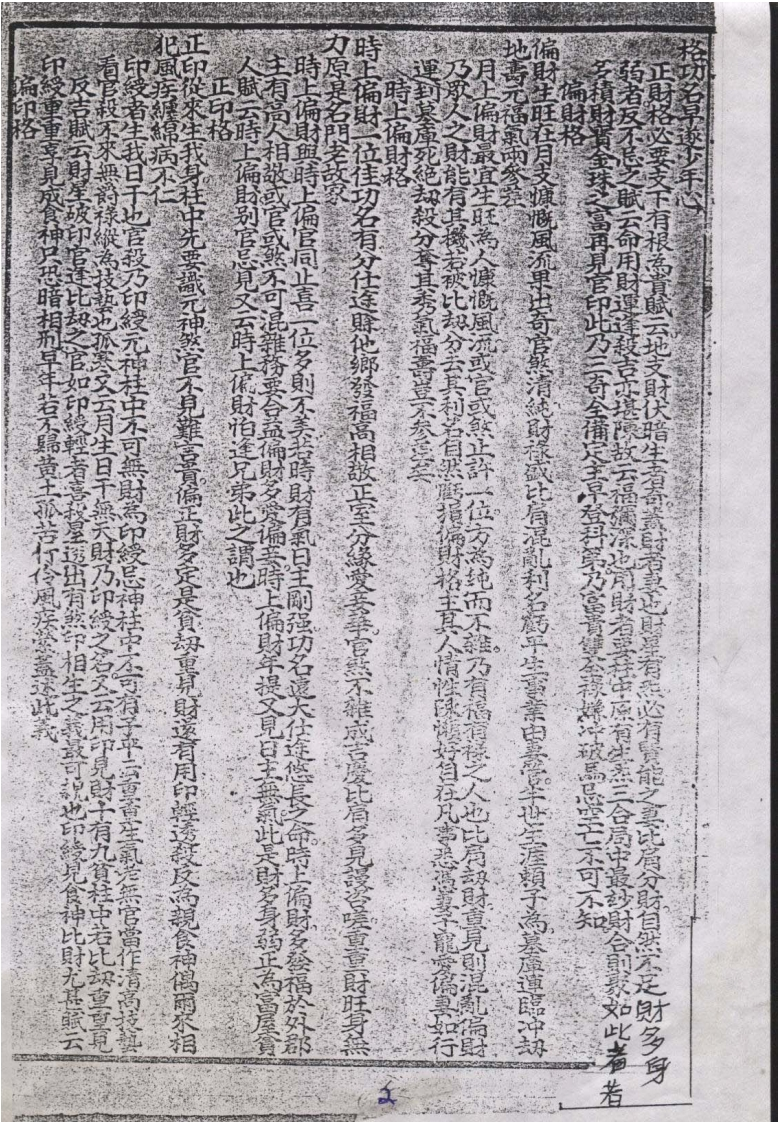 格功名早遂少年心
正財格必要支下有根為貴賦云地支財伏暗生者奇蓋財者妻也財星有無必有賢能之妻比肩分財自然不足財多身
弱者反不忌之賦云命用財運逢殺吉亦堪陳故云福瀰深也用財者要柱中原有生無三合局中最妙財合則眾如此者若
多積財寶金珠之富再見官印此乃三奇全備定主早登科第乃富貴雙全祿嫌沖破馬忌空亡不可不知
偏財格
偏財生旺在月支慷慨風流果出奇官煞清純財祿盛比肩混亂利名虧平生事業由妻管半世生涯賴子為墓庫運臨冲劫
地壽元福氣兩參差
月上偏財最宜生旺為人慷慨風流或官或煞止許一位方為純而不雜乃有福有祿之人也比肩劫財重見則混亂偏財
乃眾人之財能有其機若被比劫分去其利名自然虧損偏財格主其人情性疎懶好自在凡事悉憑妻子寵愛偏妻如行
運到墓庫死絕劫殺分奪其秀氣福壽豈不參差矣
時上偏財格
時上偏財一位佳功名有分仕途賒他鄉發福高相敬正室分緣愛妾華官煞不雜成吉慶比肩多見謾咨嗟重重財旺身無
力原是名門老故家
時上偏財與時上偏官同止喜一位多則不美若時財有氣日主剛强功名遠大仕途悠長之命時上偏財多發福於外郡
主有高人相敬或官或煞不可混雜務要合益偏財多愛偏妾時上偏財年提又見日主無氣此是財多身弱正為富屋貧
人賦云時上偏財別宮忌見又云時上偏財怕逢兄弟此之謂也
正印格
正印從來生我身柱中先要識元神煞官不見難言貴偏正財多定是貧劫重見財還有用印輕透殺反為親食神偶爾來相
犯風疾纏綿病不仁
印綬者生我日干也官殺乃印綬元神柱中不可無財為印綬忌神柱中不可有子平云重畜生氣若無官當作清高技藝
看官殺不來無爵祿縱為技藝也孤寒又云月生日干無天財乃印綬之名又云用印見財十有九貧柱中若比劫重重見
反吉賦云財星破印官逢比劫之官如印綬輕者喜殺星透出有煞印相生之義最可親也印綬見食神比財尤甚賦云
印綬重重享見成食神只恐暗相刑早年若不歸黃土孤苦伶仃風疾縈蓋述此義
偏印格
2